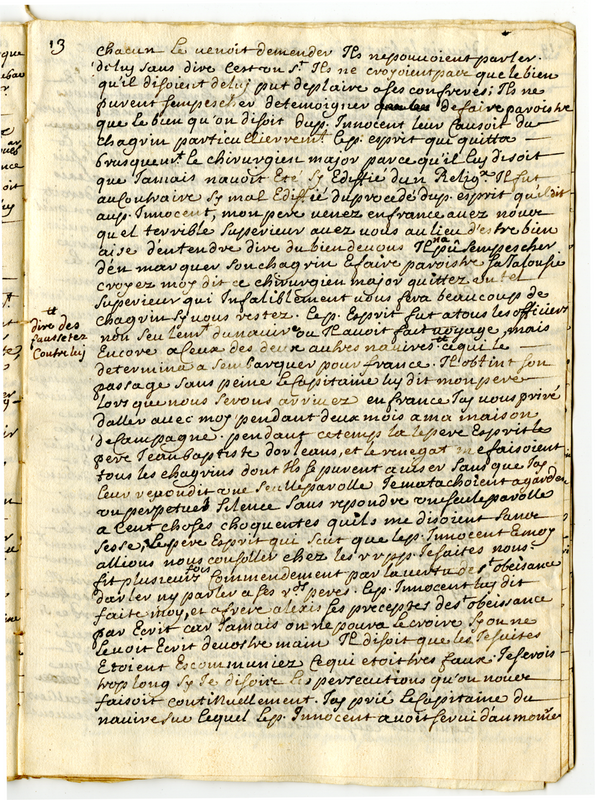 13
chacun Le venoit demender Ils ne pouvoient parler
de luy sans dire Cest un st. Ils ne croyoient pas que le bien
qu'il disoient de luy put deplaire a ses confreres; Ils ne
purent sempescher de temoigner de faire paroistre
que le bien qu'on disoit du p. Innocent leur Causoit du
chagrin particullierement le p. esprit qui quitta
brusquemt. le chirurgien major parce qu'il luy disoit
que Jamais navoit Eté sy Ediffié dun Religx. Il fut
au Contraire sy mal Ediffié du procedé du p. esprit qu'il dit
au p. Innocent, mon pere venez en france avez nous
quel terrible Superieur avez vous au lieu d'estre bien
aise d'entendre dire du bien de vous Il na pû sempescher
d'en marquer son chagrin Et faire paroistre sa Jalousie
croyez moy dit ce chirurgien major quittez un tel
Superieur qui Infaliblement vous fera beaucoup de
chagrin sy vous restez. Le p. Esprit fut a tous les officiers
non seulemt. du navire ou Il avoit fait voyage, mais
Encore a Ceux des deux autres navires ce qui le
dire des
faussetez
Contre luy
determina a sembarquer pour france. Il obtint son
passage sans peine Le Capitaine luy dit mon pere
lors que nous serons arrivez en france Jay vous privé
daller avec moy pendant deux mois a ma maison
de Campagne. pendant ce temps la le pere Esprit le
pere Jean baptiste dorleans, et le renegat me faisoient
tous les chagrins dont Ils se purent aviser sans que Jay
leur repondit une seulle parolle Je matachoient a garder
un perpetuel silence sans repondre une seule parolle
a Cent choses choquentes quils me disoient sans
sesse, Le pere Esprit qui scut que le p. Innocent Et moy
allions nous consoller chez les r r p p. Jesuites nous
fit plusieurs fois Commendement par la vertu de ste. obeisance
de parler ny parler a ses rds peres. Le p. Innocent luy dit
faite moy, et a frere alexis ses preceptes de ste. obeissance
par Ecrit car Jamais on ne poura le croire sy on ne
le voit Ecrit de vostre main Il disoit que les Jesuites
Etoient Escommuniez Ce qui etoit tres faux. Je serois
trop long sy Je disoire les persecutions qu'on nous
faisoit contiNuellement. Jay prié le Capitaine du
navire sur lequel Le p. Innocent avoit servi d'aumonier